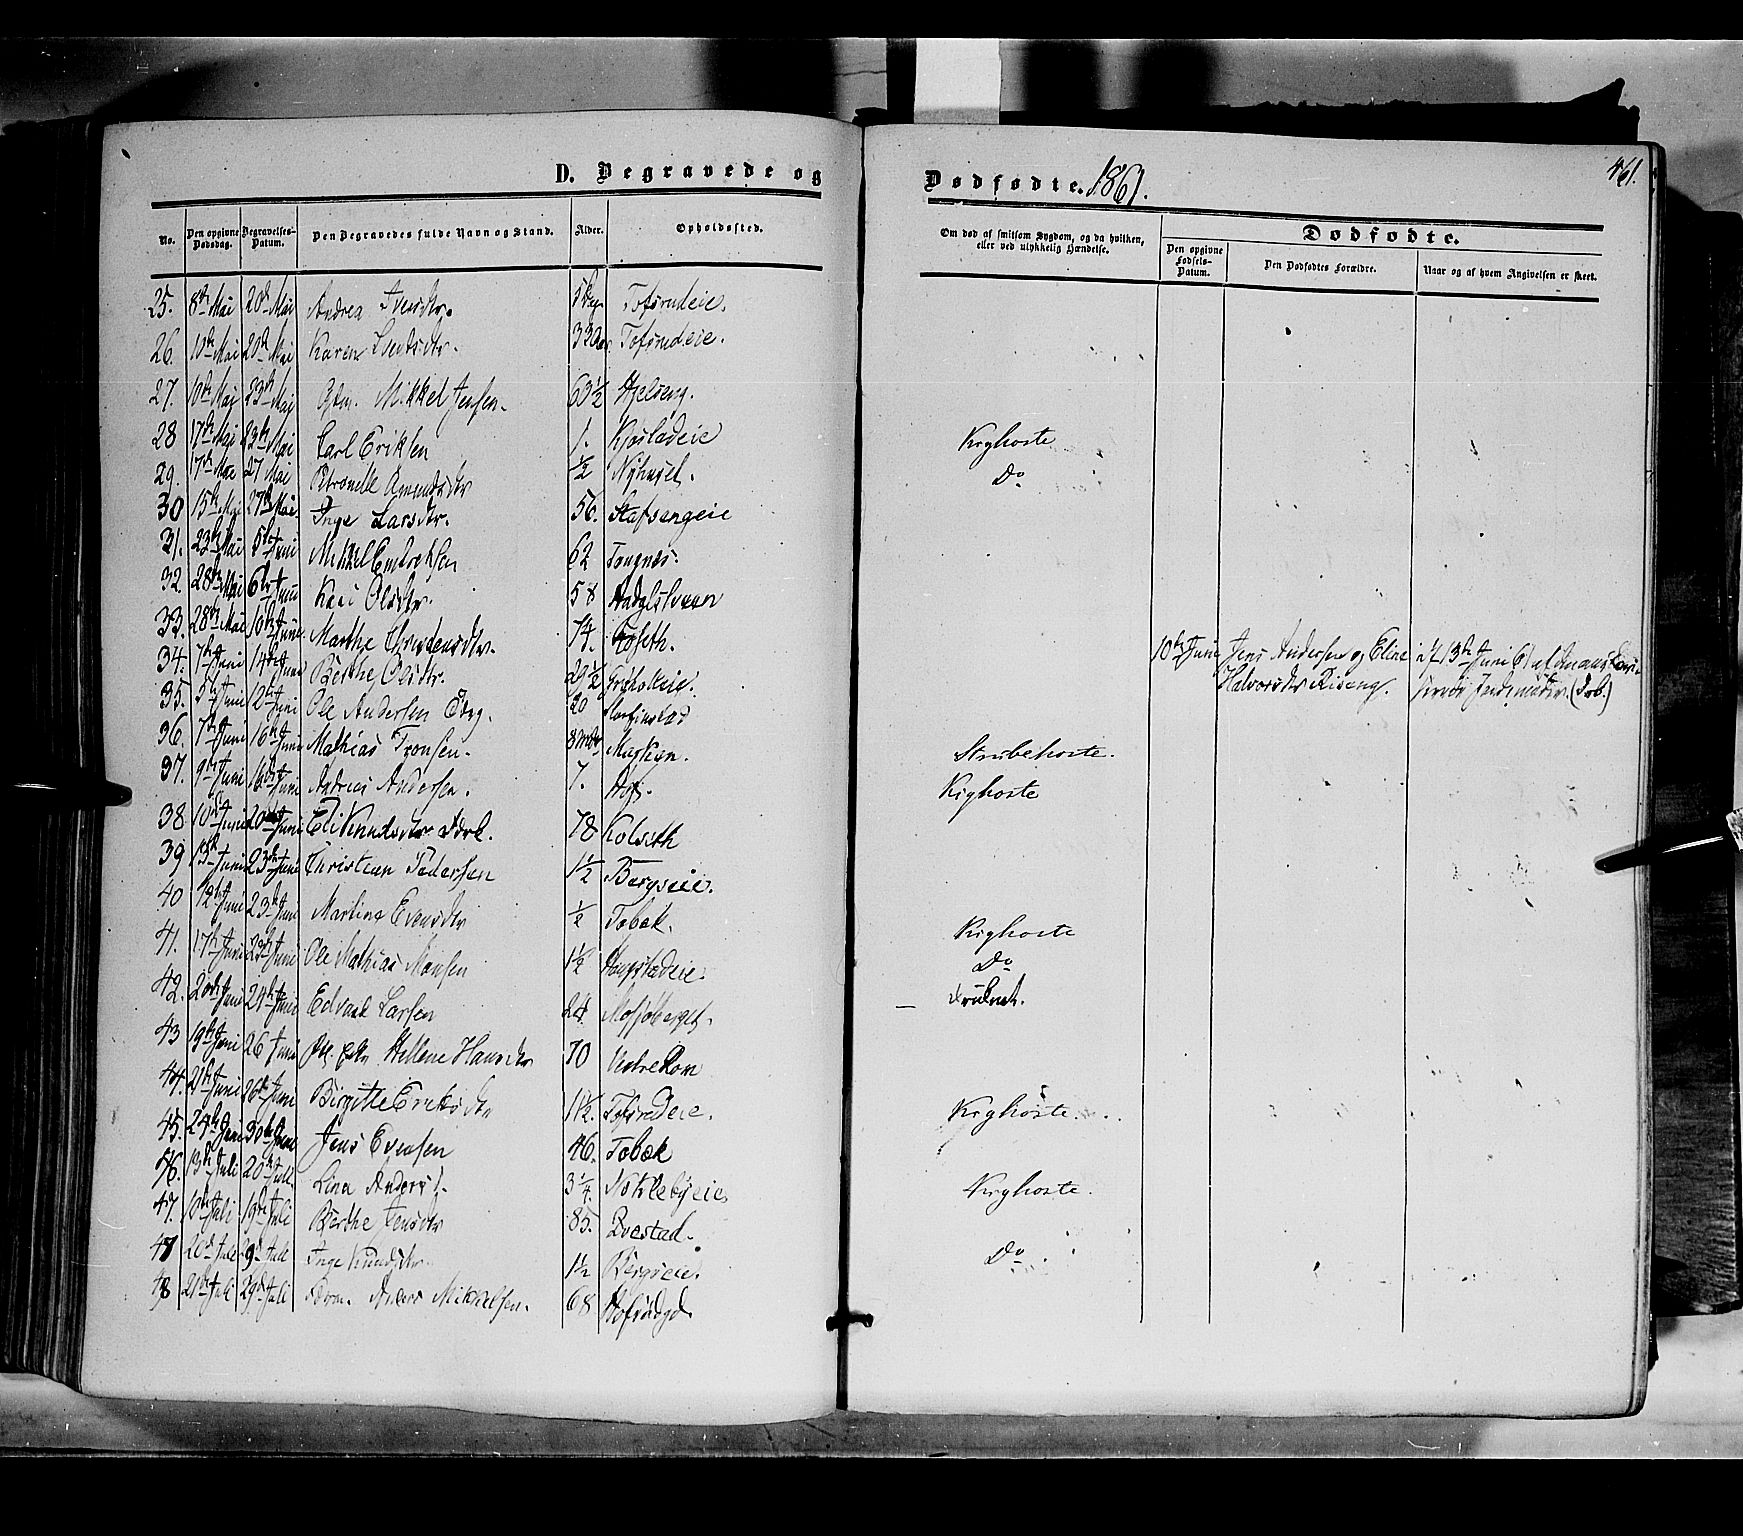 D. Begravede og
Dødfødte. 1861.
461.
No.
Den opgivne Dødsdag.
Begravelses-Datum.
Den Begravedes fulde Navn og Stand.
Alder.
Opholdssted.
Om død af smitsom Sygdom, og da hvilken, eller ved ulykkelig Hændelse.
Dødfødte.
Den opgivne Fødsels-Datum.
Den Dødfødtes Forældre.
Naar og af hvem Angivelsen er skeet.
25. 8de Mai 20de Mai Andrea Iversdtr. Tofsrudeie.
26. 10de Mai 20de Mai Karen 33 Tofsrudeie.
27. 10de Mai 23de Mai Mikkel Jensen. 63½ Hjelseng.
28 17de Mai 23de Mai Carl Eriksen 1. Kjøsladeie Kighoste
29. 17de Mai 27 Mai Petronelle Amundsdtr ½ Nyhuset. Do
30 15de Mai 27de Mai. Inge Larsdtr. 56. Stafsengeie
31. 23de Mai 5te Juni Mikkel Embretsen 62 Tangnæs.
32 28de Mai 6te Juni Kari Olsdtr. 58
33. 28de Mai 10de Juni Marthe 74. Koseth.
10de Juni Jens Andersen og Eline Halvorsdtr Riseng. 13de Juni 61
34. 7de Juni 14de Juni Berthe Olsdtr. 29½
35. 5te Juni 12te Juni Ole Andersen 20
36. 7de Juni 16de Juni Mathias Tronsen. 8 Mdr Strubehoste.
37. 9de Juni 16de Juni Andreas Andersen. 7. Hof. Kighoste
38 10de Juni 20de Juni Eli Knudsdtr 78 Kolseth
39 13de Juni 23de Juni Christian Pedersen 1½ Bergseie.
40 12te Juni 23de Juni Martine Evensdtr ½ Tobæk. Kighoste
41. 17de Juni 23de Juni Ole Mathias Monsen 1½ Do
42. 20de Juni 24de Juni Edvard Larsen 24. druknet.
43 19de Juni 26 Juni Hellene Hansdtr 70
44. 21de Juni 26de Juni Birgitte Eriksdtr 1½. Tofsrudeie. Kighoste.
45. 24de Juni 30te Juni Jens Evensen 46. Tobæk
46. 13de Juli 20de Juli Lina Andersd. 3¼. Nøklebyeie Kighoste.
47. 10de Juli 19de Juli Berthe Jensdtr 85. Qvestad.
47 20de Juli Juli Inge Knudsdtr. 1½ Bergseie. Do
48 21de Juli 29de Juli Mikkelsen. 68 Hofsbygd.